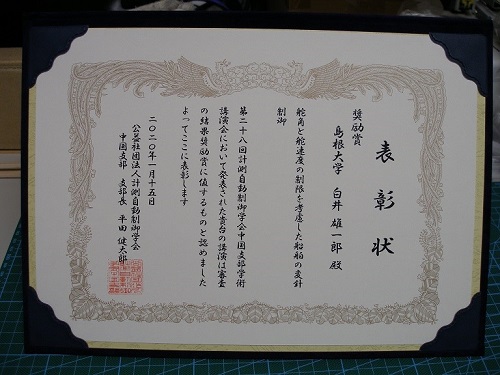 表彰状
奨励賞
島根大学 白井 雄一郎 殿
舵角と舵速度の制限を考慮した船舶の変針
制御
第二十八回計測自動制御学会中国支部学術
講演会において発表された貴台の講演は審査
の結果奨励賞に値するものと認めました
よってここに表彰します
二〇二〇年一月十五日
公益社団法人計測自動制御学会
中国支部 支部長 平田 健太郎